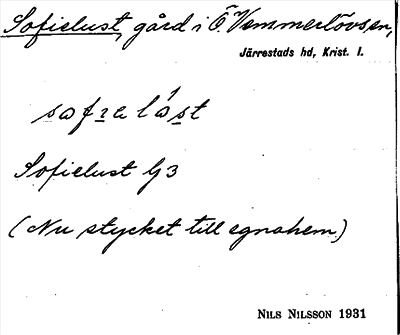 Sofielust, gård i Ö. Vemmerlövs sn,
Järrestads hd, Krist. l.
Sofielust G3
(Nu stycket till egnahem.)
NILS NILSSON 1931